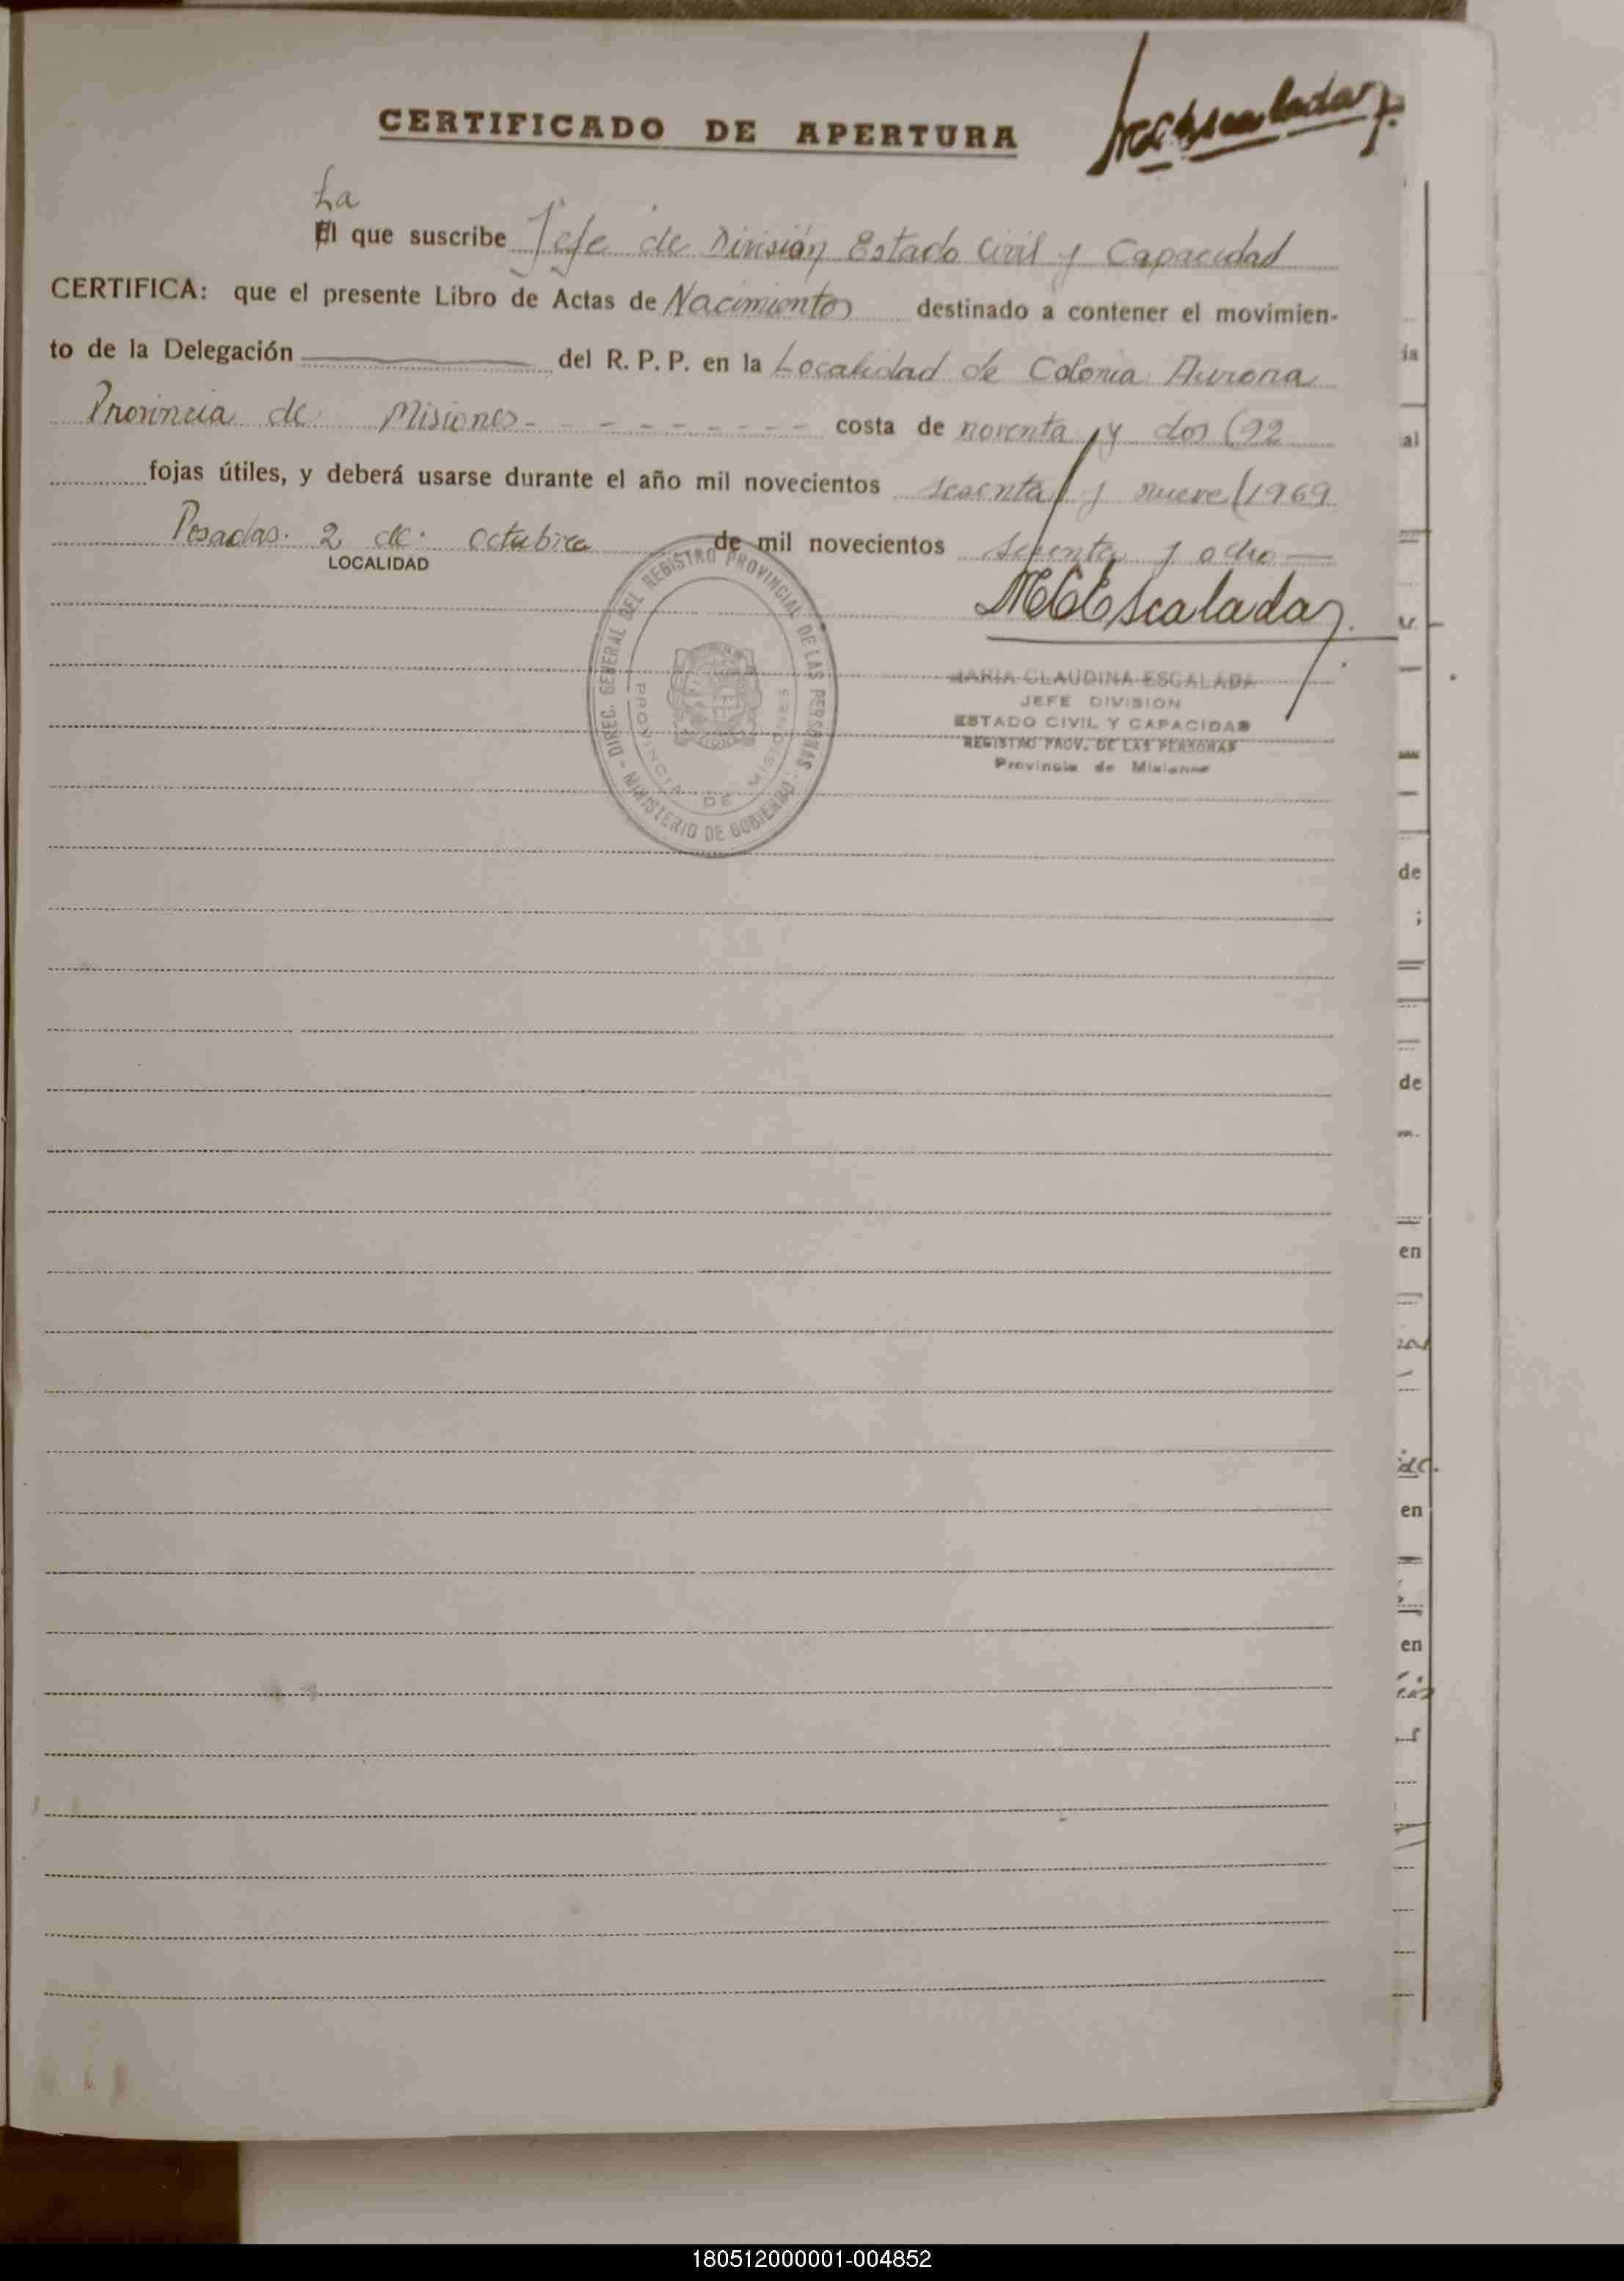 CERTIFICADO DE APERTURA
La
El que suscribe Jefe de División Estado Civil y Capacidad
CERTIFICA: que el presente Libro de Actas de Nacimientos destinado a contener el movimien-
to de la Delegación del R. P. P. en la Localidad de Colonia Aurora
Provincia de Misiones - - - - - - - - costa de noventa y dos (92
fojas útiles, y deberá usarse durante el año mil novecientos sesenta y nueve (1969
Posadas. 2 de. octubre de mil novecientos sesenta y ocho
LOCALIDAD
MCEscalada
MARIA CLAUDINA ESCALADA
JEFE DIVISION
ESTADO CIVIL Y CAPACIDAD
REGISTRO PROV. DE LAS PERSONAS
Provincia de Misiones
DIREC. GENERAL DEL REGISTRO PROVINCIAL DE LAS PERSONAS - MINISTERIO DE GOBIERNO -
PROVINCIA DE MISIONES
ia
al
de
;
de
en
en
en
180512000001-004852